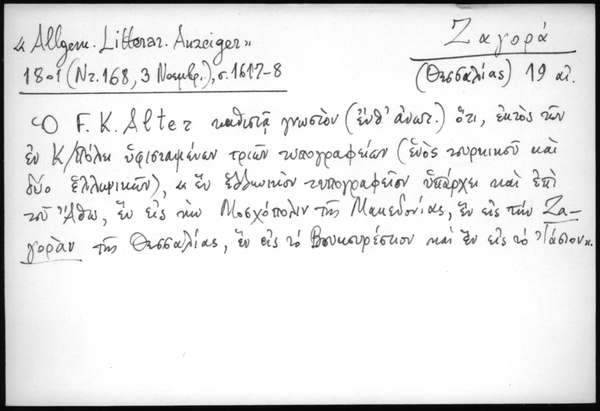 « Allgem. Litterar. Anzeiger»
Ζαγορά
1801 (Nr. 168, 3 Νοεμβρ.), σ. 1617-8
(Θεσσαλίας) 19 αἰ.
Ὁ F. K. Alter καθιστᾷ γνωστὸν (ἐνθ' ἀνωτ.) ὅτι, ἐκτὸς τῶν
ἐν Κ/πόλει ὑφισταμένων τριῶν τυπογραφείων (ἑνὸς τουρκικοῦ καὶ
δύο ἑλληνικῶν), « ἓν ἑλληνικὸν τυπογραφεῖον ὑπάρχει καὶ ἐπὶ
τοῦ Ἄθω, ἓν εἰς τὴν Μοσχόπολιν τῆς Μακεδονίας, ἓν εἰς τὴν Ζα-
γορὰν τῆς Θεσσαλίας, ἓν εἰς τὸ Βουκουρέστιον καὶ ἓν εἰς τὸ Ἰάσιον».